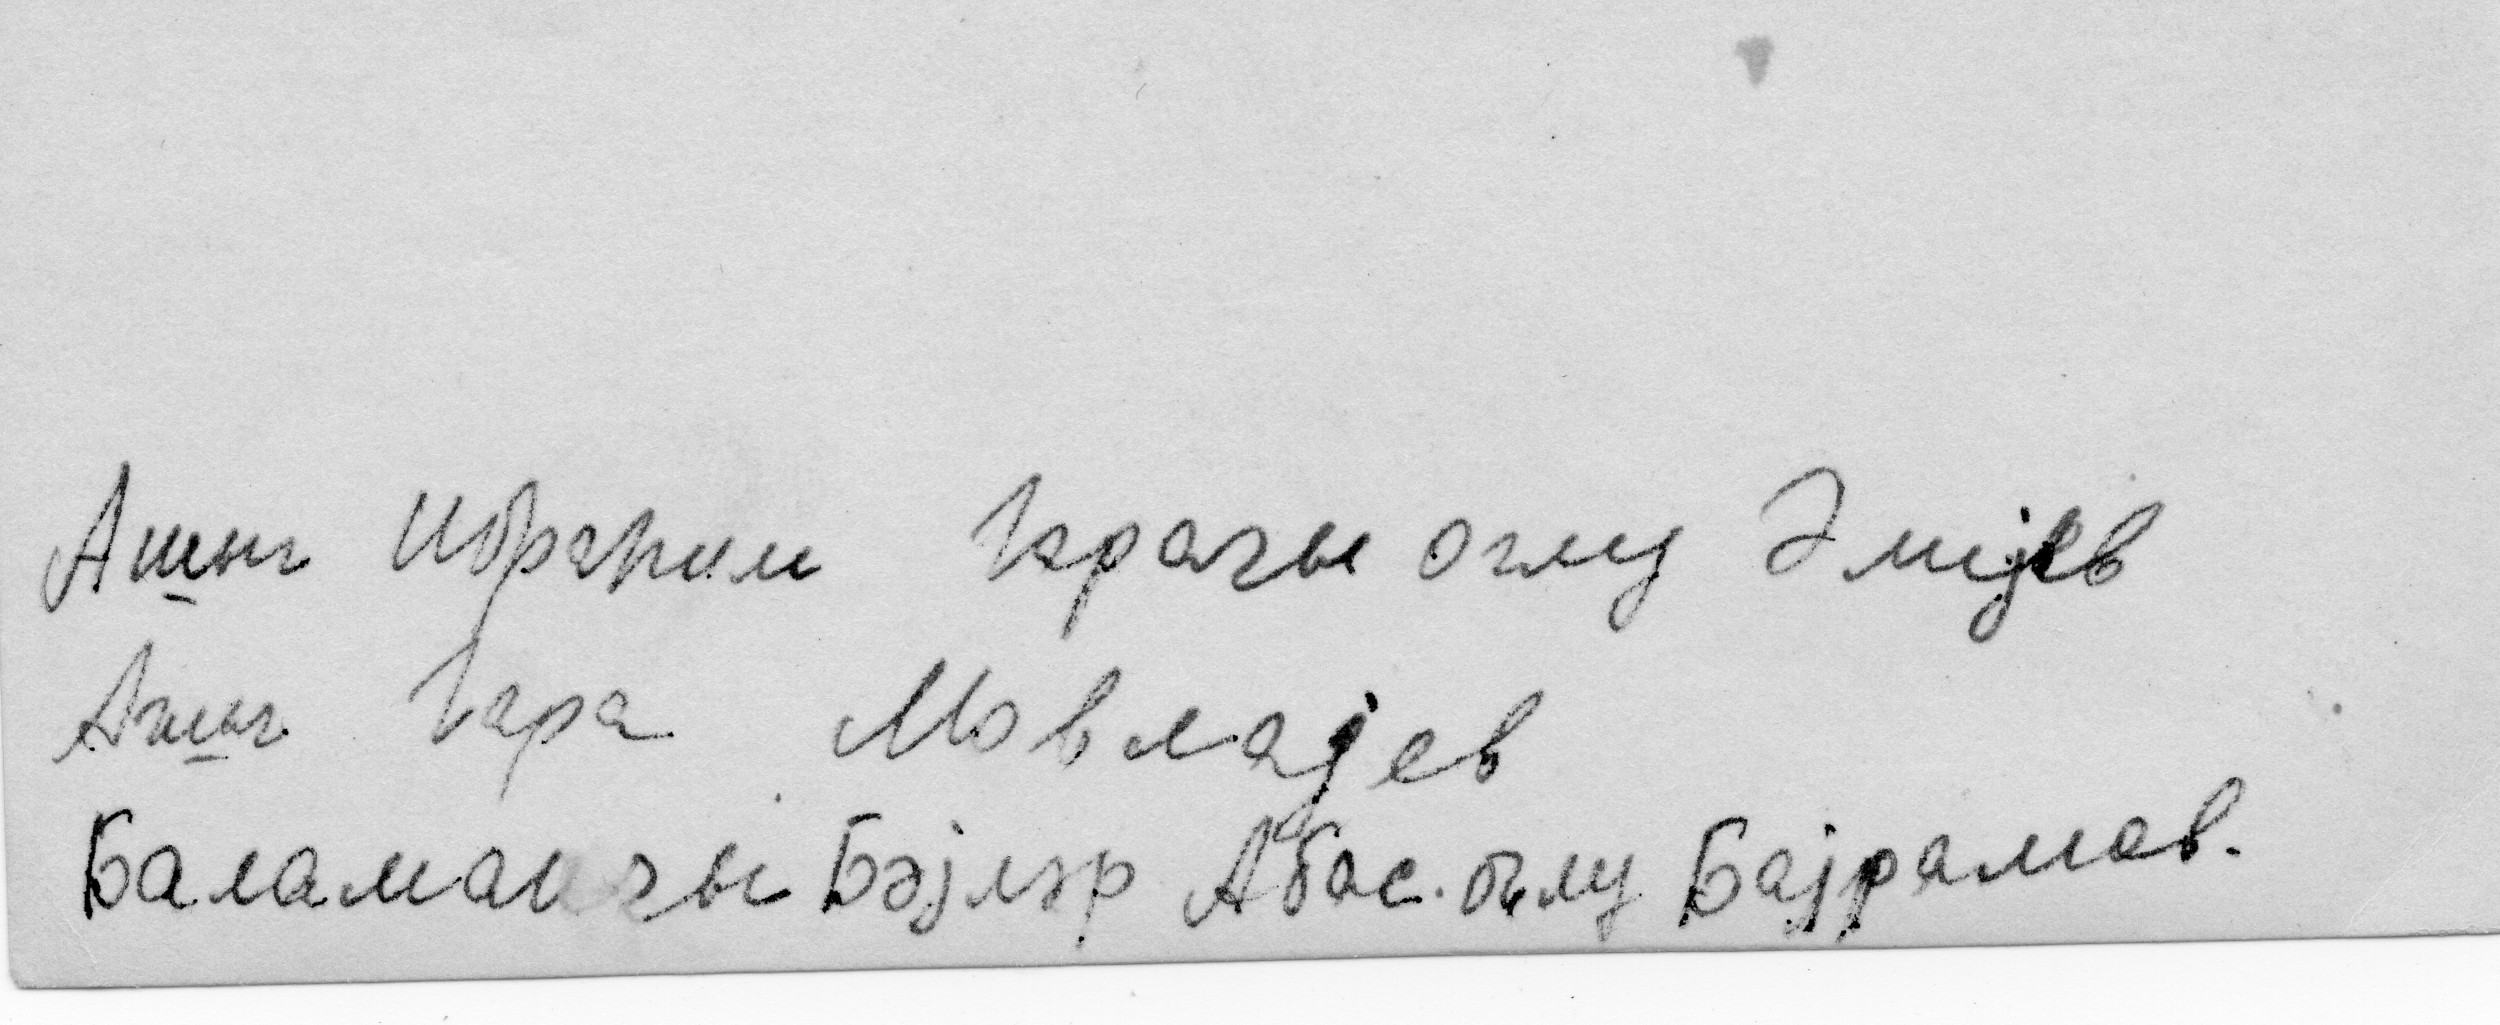 Ашыг Ибраһим Гарачы оглу Әлијев
Ашыг Гара Мовлајев
Баламанчы Бәјләр Абас. оглу Бајрамов.